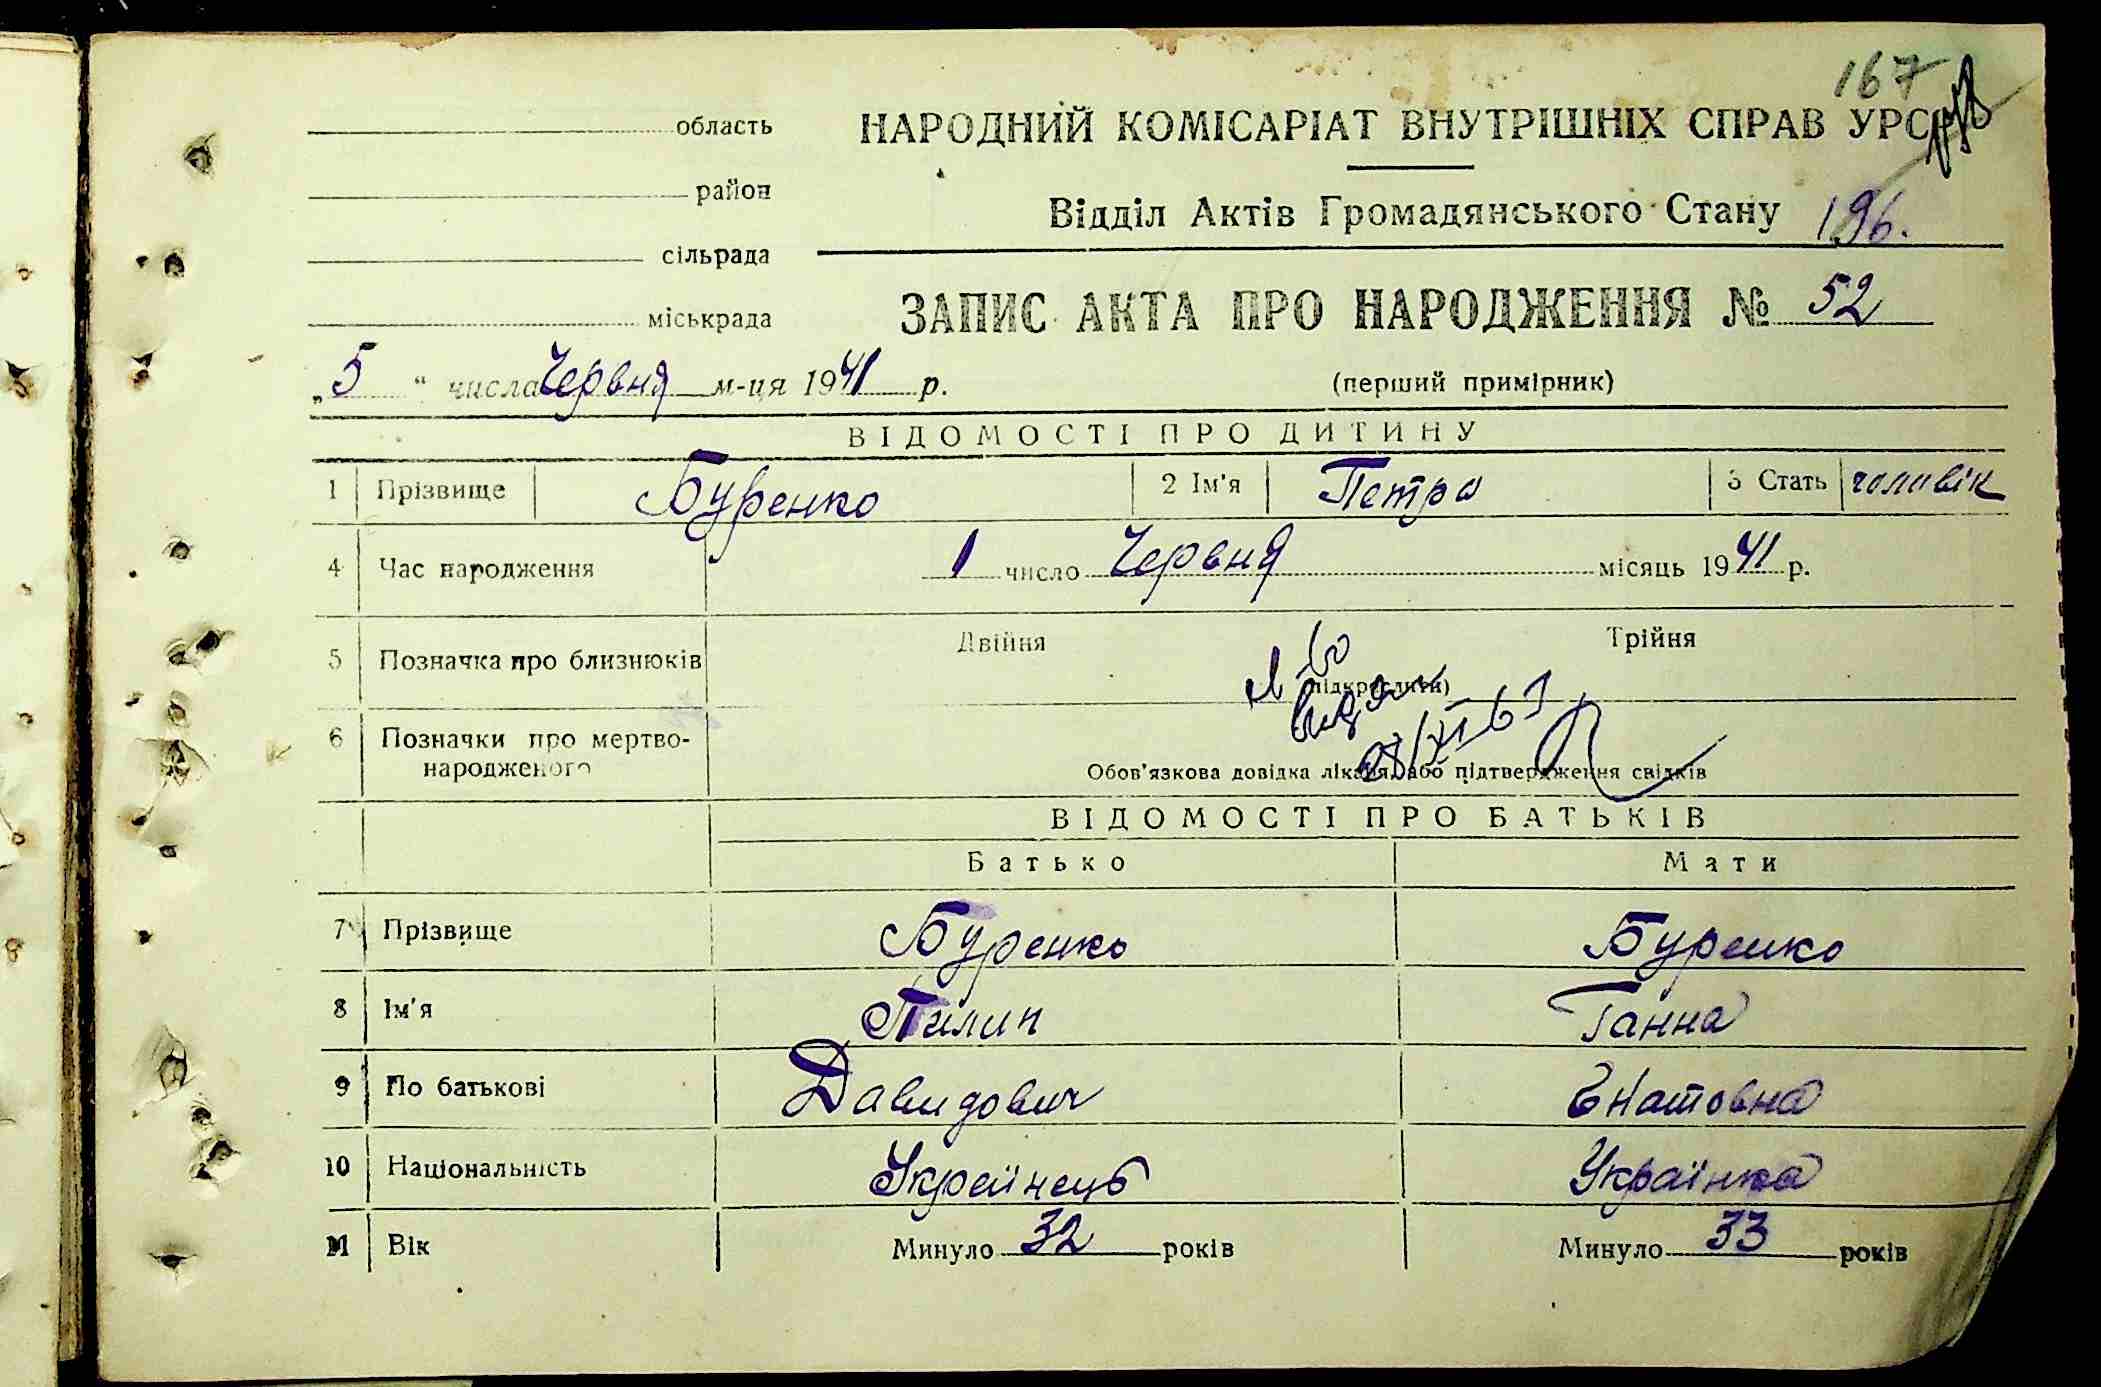 167
область
НАРОДНИЙ КОМІСАРІАТ ВНУТРІШНІХ СПРАВ УРСР
район
Відділ Актів Громадянського Стану 196.
сільрада
ЗАПИС АКТА ПРО НАРОДЖЕННЯ № 52
міськрада
„5“ числа Червня м-ця 1941 р.
(перший примірник)
ВІДОМОСТІ ПРО ДИТИНУ
1 Прізвище Буренко 2 Ім'я Петро 3 Стать чоловік
4 Час народження 1 число Червня місяць 1941 р.
5 Позначка про близнюків Двійня Трійня
(підкреслити)
видан
6 Позначки про мертво-
народженого
Обов'язкова довідка лікаря, або підтвердження свідків
ВІДОМОСТІ ПРО БАТЬКІВ
Батько Мати
7 Прізвище Буренко Буренко
8 Ім'я Пилип Ганна
9 По батькові Давидович Гнатовна
10 Національність Українець Українка
11 Вік Минуло 32 років Минуло 33 років